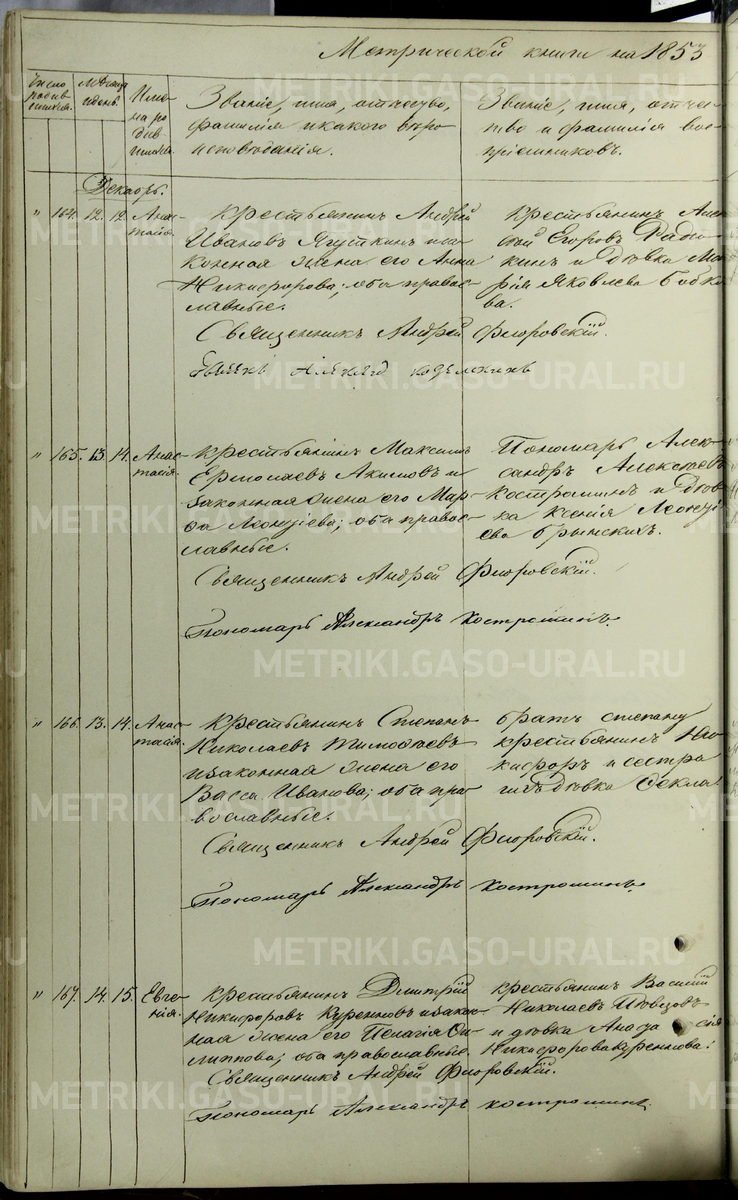 Метрической книги на 1853
Число родившихся.
Месяцъ и день.
Имена родившихся.
Званіе, имя, отчество,
фамилія и какого веро-
исповеданія.
Званіе, имя, отче-
ство и фамилія вос-
пріемниковъ.
Декабрь.
" 164. 12. 12. Анас-
тасія.
Крестьянинъ Андрей
Ивановъ Ягуткинъ и за-
конная жена его Анна
Никифорова; оба правос-
лавные.
Крестьянинъ Алек-
сей Егоровъ Ради-
кинъ и девка Ма-
рія Яковлева Бобко-
ва.
Священникъ Андрей Флоровскій.
" 165. 13. 14. Анас-
тасія.
Крестьянинъ Максимъ
Ермолаевъ Акимовъ и
законная жена его Мар-
фа Леонтіева; оба правос-
лавные.
Пономарь Алек-
сандръ Алексеевъ
Костроминъ и дев-
ка Ксенія Леонті-
ева Брынскихъ.
Священникъ Андрей Флоровскій.
Пономарь Александръ Костроминъ
" 166. 13. 14. Анас-
тасія.
Крестьянинъ Степанъ
Николаевъ Тимофеевъ
и законная жена его
Васса Иванова; оба пра-
вославные.
братъ Степану
крестьянинъ Ни-
кифоръ и сестра
девка Фекла.
Священникъ Андрей Флоровскій.
Пономарь Александръ Костроминъ
" 167. 14. 15. Евге-
нія.
Крестьянинъ Дмитрій
Никифоровъ Куренновъ и закон-
ная жена его Пелагія Фи-
липпова; оба православные.
Крестьянинъ Василій
Николаевъ Шевцовъ
и девка
Никифорова Куреннова.
Священникъ Андрей Флоровскій.
Пономарь Александръ Костроминъ
METRIKI.GASO-URAL.RU